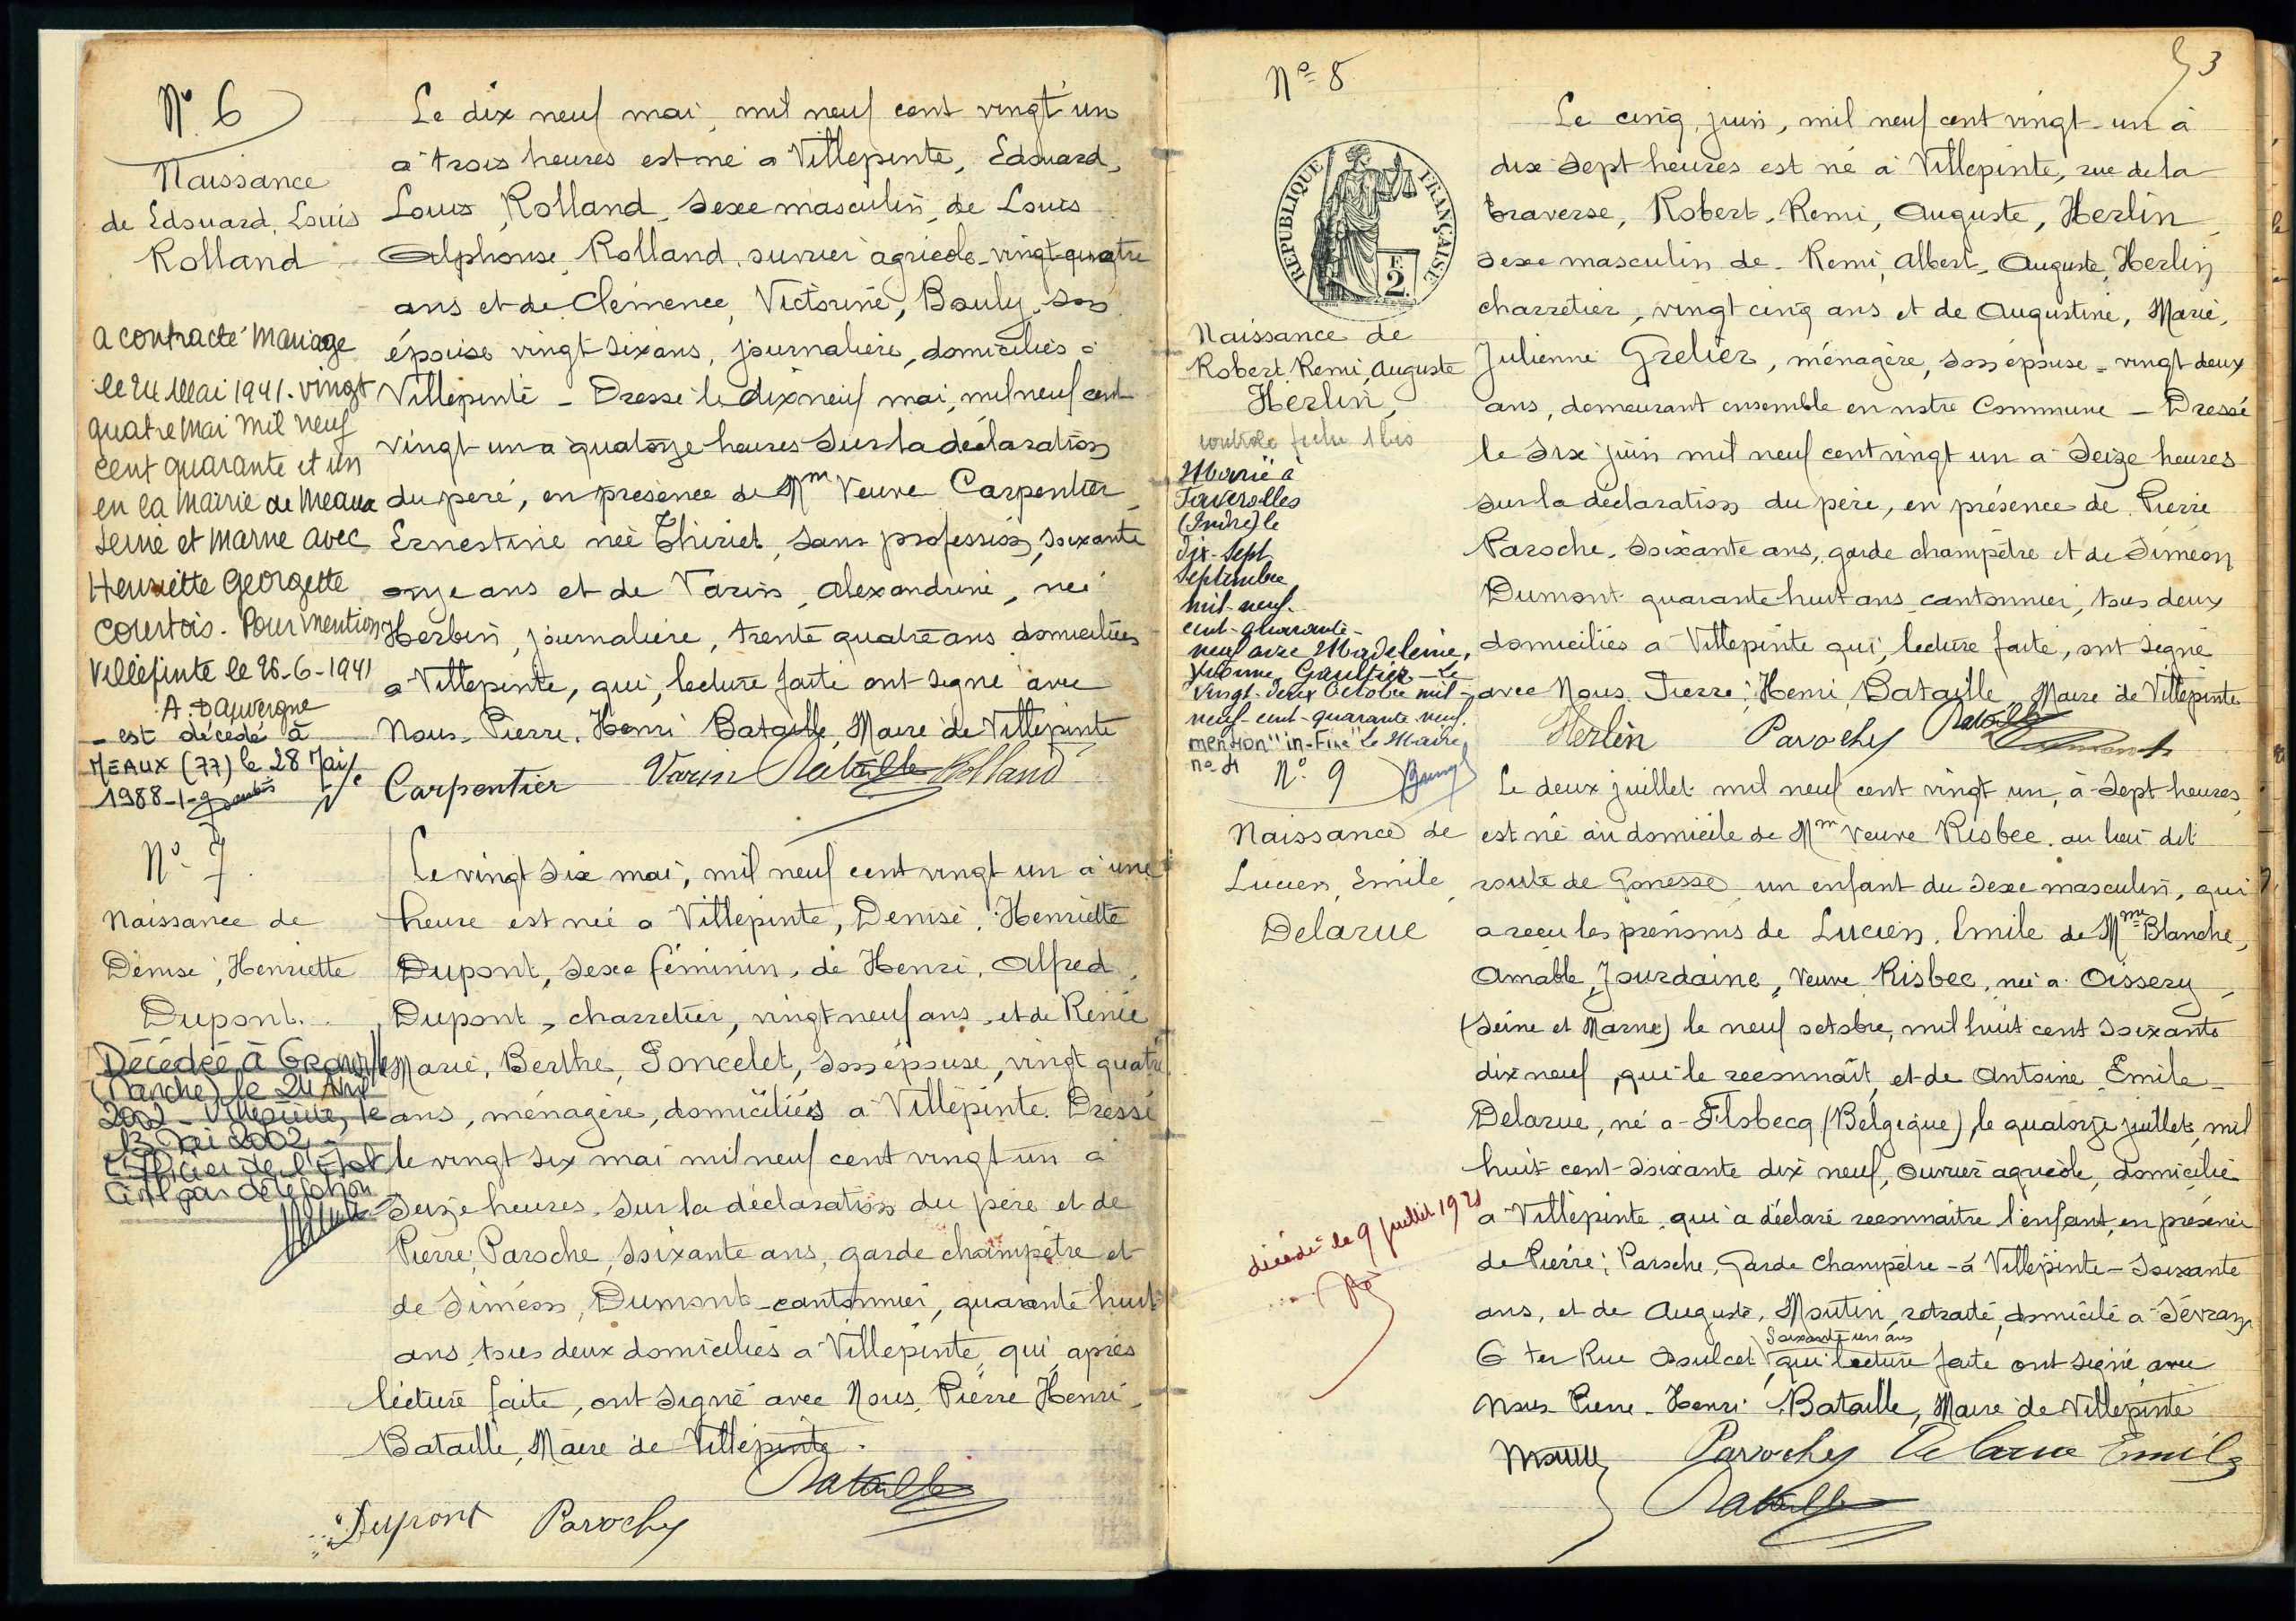 Nº 6
Naissance
de Edouard, Louis
Rolland
a contracté mariage
le 24 Mai 1941. vingt
quatre mai mil neuf
cent quarante et un
en la mairie de Meaux
Seine et Marne avec
Henriette Georgette
Courtois. Pour mention
Villepinte le 28-6-1941
A. Dauvergne
- est décédé à
MEAUX (77) le 28 Mai
1988
Le dix neuf mai, mil neuf cent vingt un
a trois heures est né a Villepinte, Edouard,
Louis, Rolland, sexe masculin, de Louis
Alphonse, Rolland, ouvrier agricole, vingt quatre
ans et de Clémence, Victorine, Bouly, son
épouse vingt six ans, journalière, domiciliés à
Villepinte - Dressé le dix neuf mai, mil neuf cent
vingt un a quatorze heures sur la déclaration
du père, en présence de Mm Veuve Carpentier,
Ernestine née Thiriet, sans profession, soixante
onze ans et de Varin, Alexandrine, née
Herbin, journalière, trente quatre ans domiciliées
a Villepinte, qui, lecture faite ont signé avec
Nous, Pierre, Henri Bataille, Maire de Villepinte
Carpentier Varin Bataille Rolland
Nº 7
Naissance de
Denise, Henriette
Dupont.
Décédée à Granville
(Manche) le 24 Avril
2002 - Villepinte, le
13 Mai 2002
L'Officier de l'Etat
Civil par délégation
Le vingt six mai, mil neuf cent vingt un a une
heure est née a Villepinte, Denise, Henriette
Dupont, sexe féminin, de Henri, Alfred,
Dupont, charretier, vingt neuf ans, et de Renée
Marie, Berthe, Poncelet, son épouse, vingt quatre
ans, ménagère, domiciliés a Villepinte. Dressé
le vingt six mai mil neuf cent vingt un à
seize heures, sur la déclaration du père et de
Pierre, Paroche, soixante ans, garde champêtre et
de Siméon, Dumont - cantonnier, quarante huit
ans, tous deux domiciliés a Villepinte qui, après
lecture faite, ont signé avec Nous, Pierre Henri,
Bataille, Maire de Villepinte.
Bataille
Dupont Parochy
53
Nº 8
REPUBLIQUE FRANÇAISE
F.
2.
Naissance de
Robert, Remi, Auguste
Herlin,
contrôle fiche 1 bis
Marié à
(Indre) le
dix-sept
Septembre
mil-neuf-
cent-quarante-
neuf avec Madeleine,
Yvonne, Gaultier - Le
vingt-deux Octobre mil-
neuf-cent-quarante-neuf.
mention "in-fine" Le Maire,
nº 4
Le cinq juin, mil neuf cent vingt-un à
dix sept heures est né à Villepinte, rue de la
traverse, Robert, Remi, Auguste, Herlin,
sexe masculin de Remi, Albert, Auguste, Herlin
charretier, vingt cinq ans et de Augustine, Marie,
Julienne Grelier, ménagère, son épouse - vingt deux
ans, demeurant ensemble en notre Commune - Dressé
le six juin mil neuf cent vingt un a seize heures
sur la déclaration du père, en présence de Pierre
Paroche, soixante ans, garde champêtre et de Siméon
Dumont quarante huit ans, cantonnier, tous deux
domiciliés a Villepinte qui, lecture faite, ont signé
avec Nous, Pierre, Henri, Bataille, Maire de Villepinte
Herlin Parochy Bataille Dumont
Nº 9
Naissance de
Lucien, Emile,
Delarue
décédé le 9 juillet 1921
Le deux juillet mil neuf cent vingt un, à sept heures,
est né au domicile de Mm veuve Risbec, au lieu dit
route de Gonesse, un enfant du sexe masculin, qui
a reçu les prénoms de Lucien, Emile de Mme Blanche,
Amable, Jourdaine, Veuve Risbec, née a Oissery,
(Seine et Marne) le neuf octobre, mil huit cent soixante
dix neuf, qui le reconnaît, et de Antoine, Emile -
Delarue, né a Flobecq (Belgique), le quatorze juillet, mil
huit cent soixante dix neuf, ouvrier agricole, domicilié
a Villepinte, qui a déclaré reconnaitre l'enfant, en présence
de Pierre, Paroche, garde champêtre - à Villepinte - soixante
ans, et de Auguste, Moutin, retraité, domicilié a Sevran,
soixante un ans
6 ter Rue Doulcet, qui lecture faite ont signé avec
Nous Pierre - Henri Bataille, Maire de Villepinte
Parochy Delarue Emile
Bataille